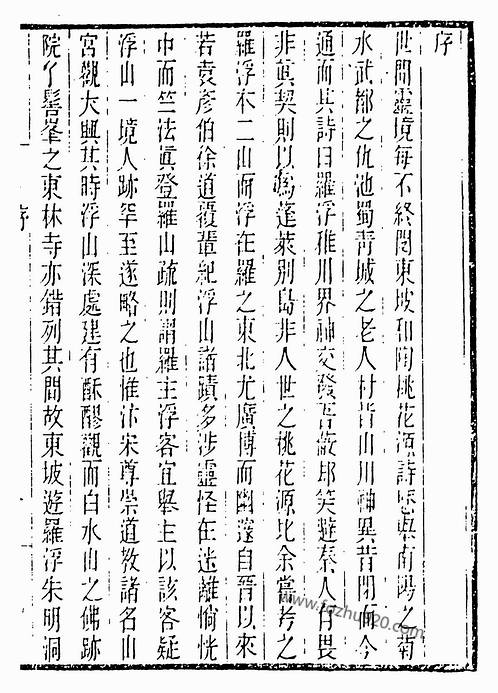 序
世間靈境每不終閟東坡和陶桃花源詩歷舉南陽之菊
水武都之仇池蜀靑城之老人村皆山川神異昔閉而今
通而其詩曰羅浮稚川界神交發吾蔽却笑避秦人有畏
非眞契則以爲蓬萊別島非人世之桃花源比余嘗考之
羅浮本二山而浮在羅之東北尤廣博而幽邃自晉以來
若袁彥伯徐道覆輩紀浮山諸蹟多涉靈怪在迷離惝恍
中而竺法眞登羅山疏則謂羅主浮客宜舉主以該客疑
浮山一境人跡罕至遂略之也惟汴宋尊崇道敎諸名山
宮觀大興其時浮山深處建有酥醪觀而白水山之佛跡
院了髻峯之東林寺亦錯列其間故東坡遊羅浮朱明洞
序
www.fozhu920.com